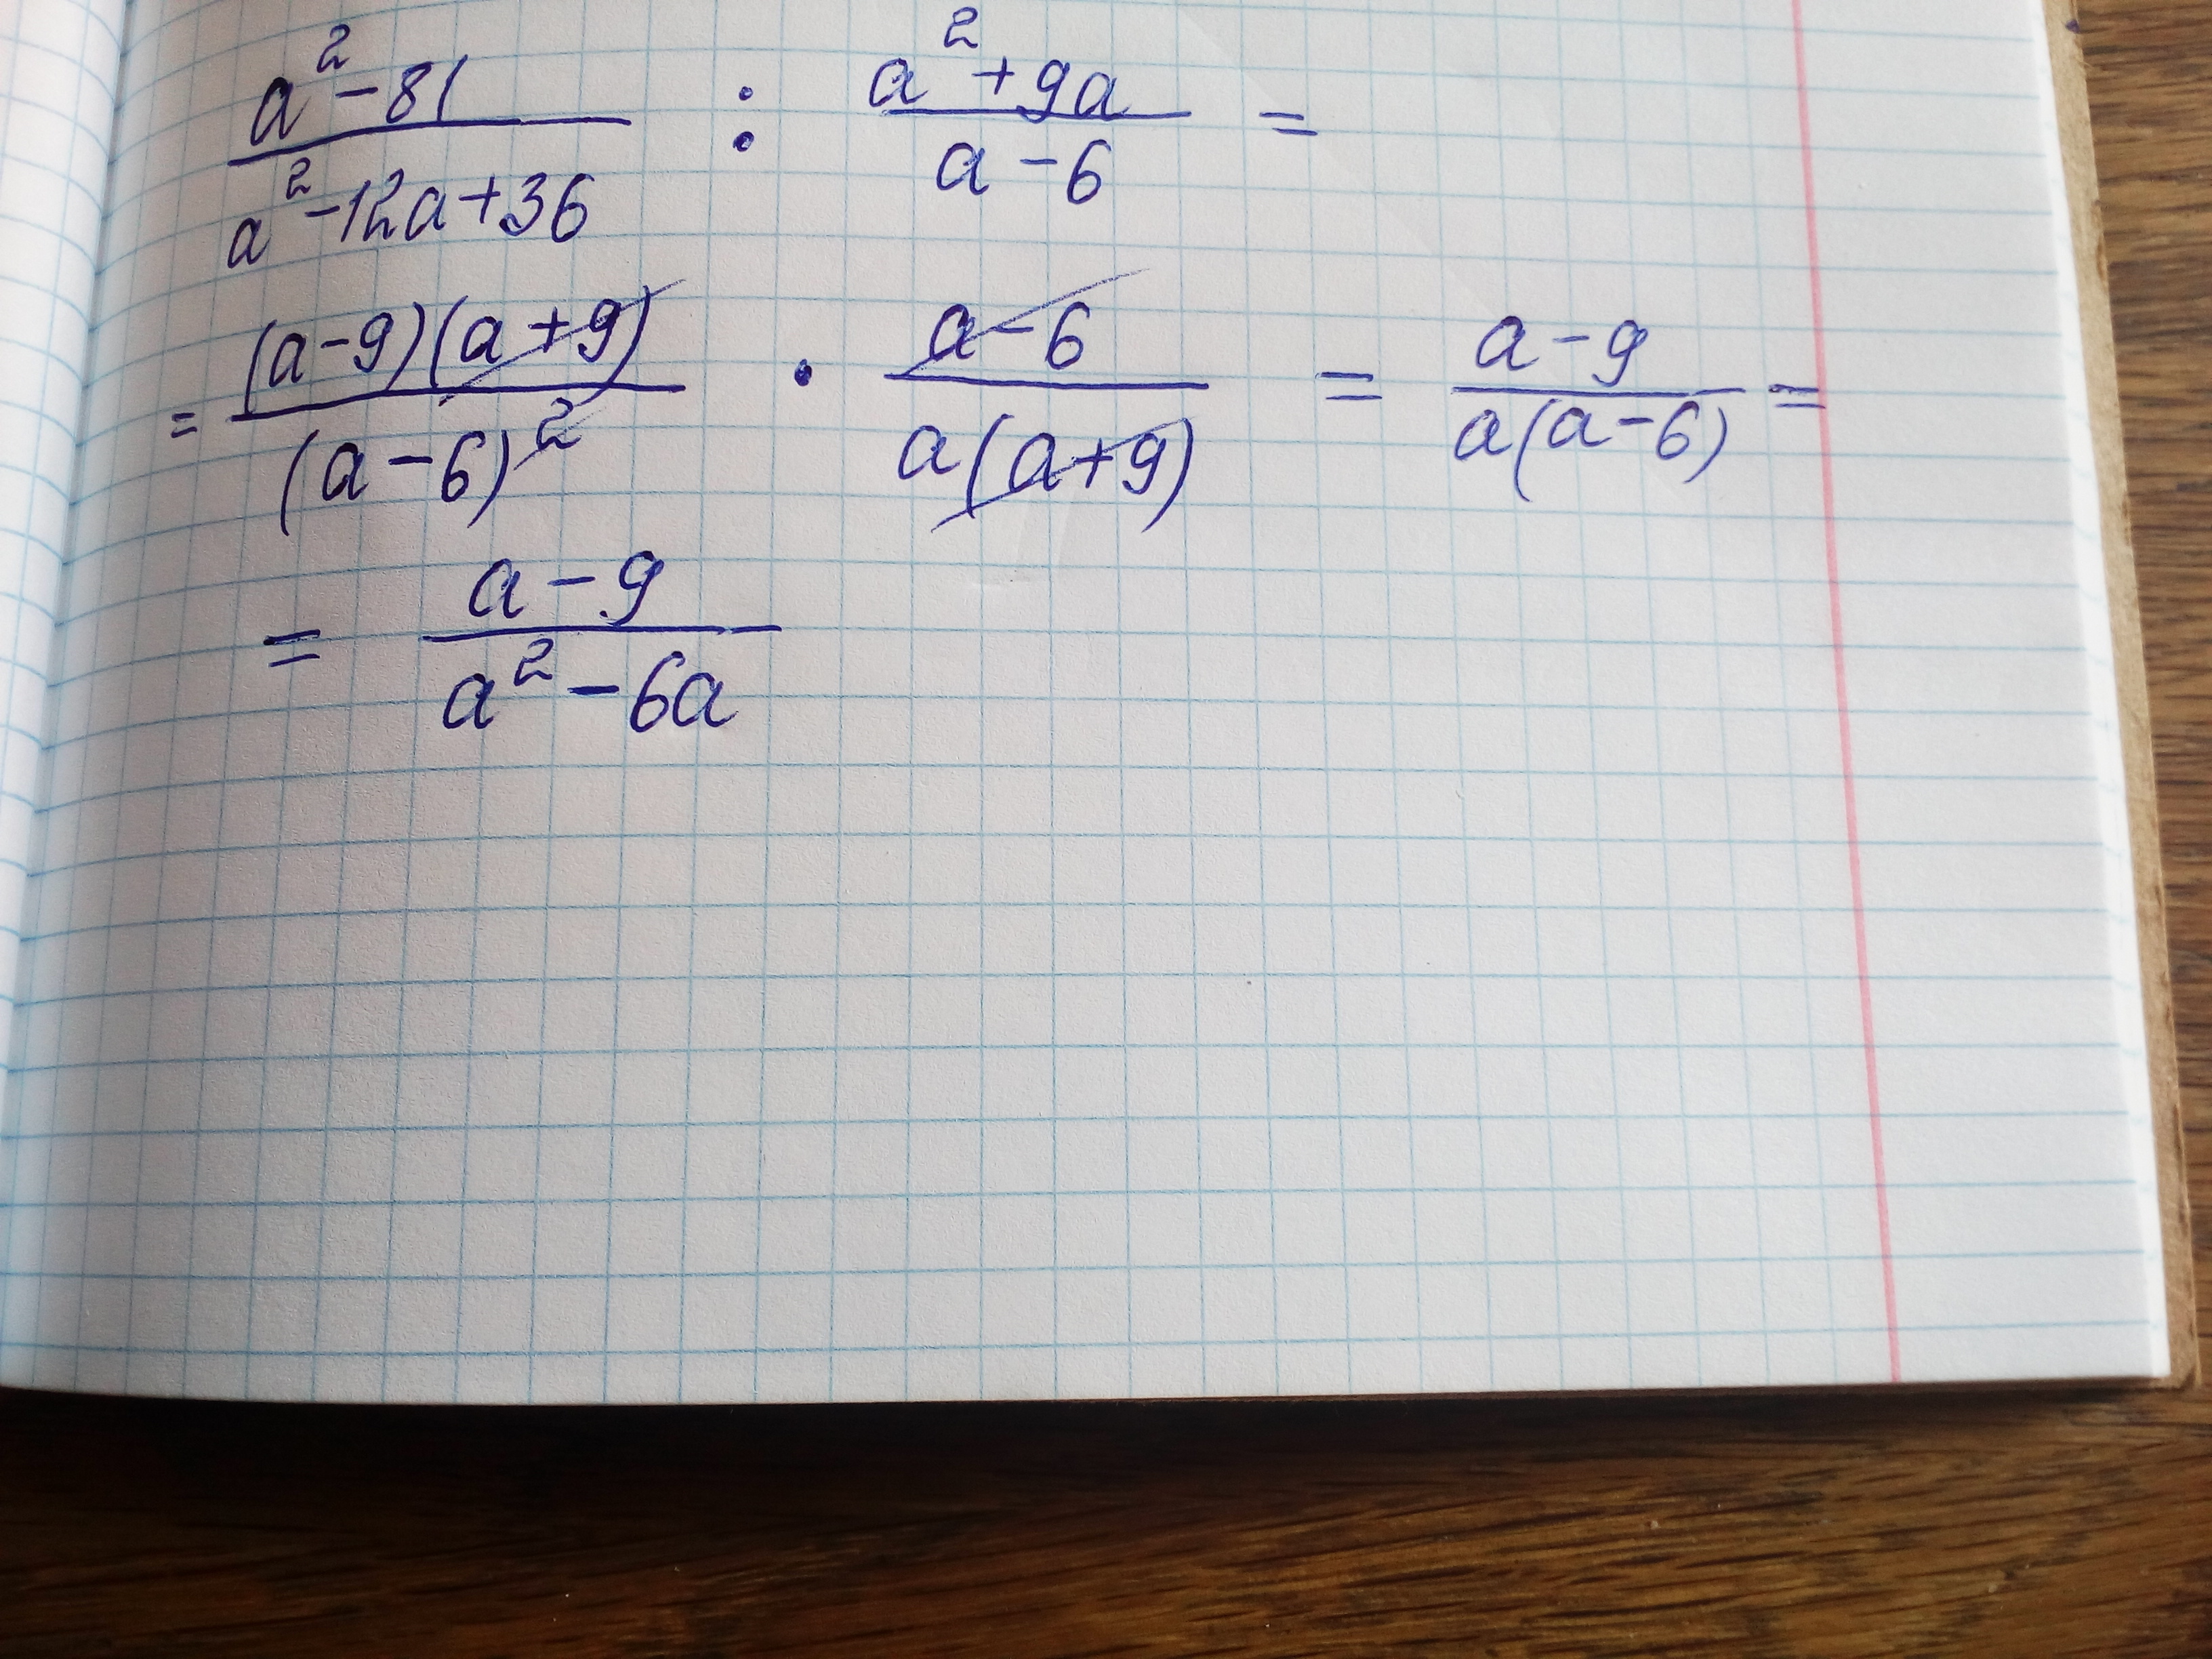 (a² - 81)/(a² - 12a + 36) : (a² + 9a)/(a - 6) =
= ((a - 9)(a + 9))/((a - 6)²) · (a - 6)/(a(a + 9)) = (a - 9)/(a(a - 6)) =
= (a - 9)/(a² - 6a)